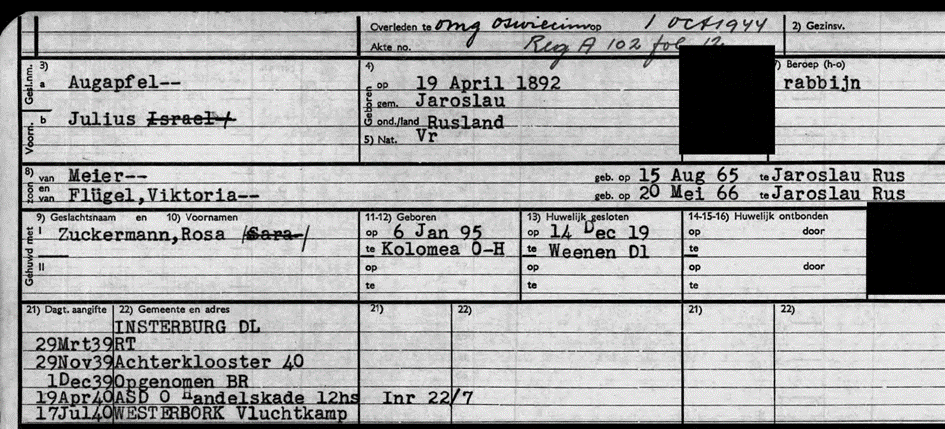 Overleden te omg oswiecim op 1 Oct 1944 2) Gezinsv.
Akte no. Reg A 102 fol 12
Gesl.nm. 3) a Augapfel-- 4) Geboren op 19 April 1892 Beroep (h-o) rabbijn
gem. Jaroslau
Voorn. b Julius Israel ond./land Rusland
5) Nat. Vr
8) zoon van Meier-- geb. op 15 Aug 65 te Jaroslau Rus
en van Flügel,Viktoria-- geb. op 20 Mei 66 te Jaroslau Rus
9) Geslachtsnaam en 10) Voornamen 11-12) Geboren 13) Huwelijk gesloten 14-15-16) Huwelijk ontbonden
Gehuwd met I Zuckermann,Rosa /Sara-/ op 6 Jan 95 op 14 Dec 19 op door
te Kolomea O-H te Weenen Dl te
II op op op door
te te te
21) Dagt. aangifte 22) Gemeente en adres 21) 22) 21) 22)
INSTERBURG DL
29Mrt39 RT
29Nov39 Achterklooster 40
1Dec39 Opgenomen BR
19Apr40 ASD O Handelskade 12hs Inr 22/7
17Jul40 WESTERBORK Vluchtkamp